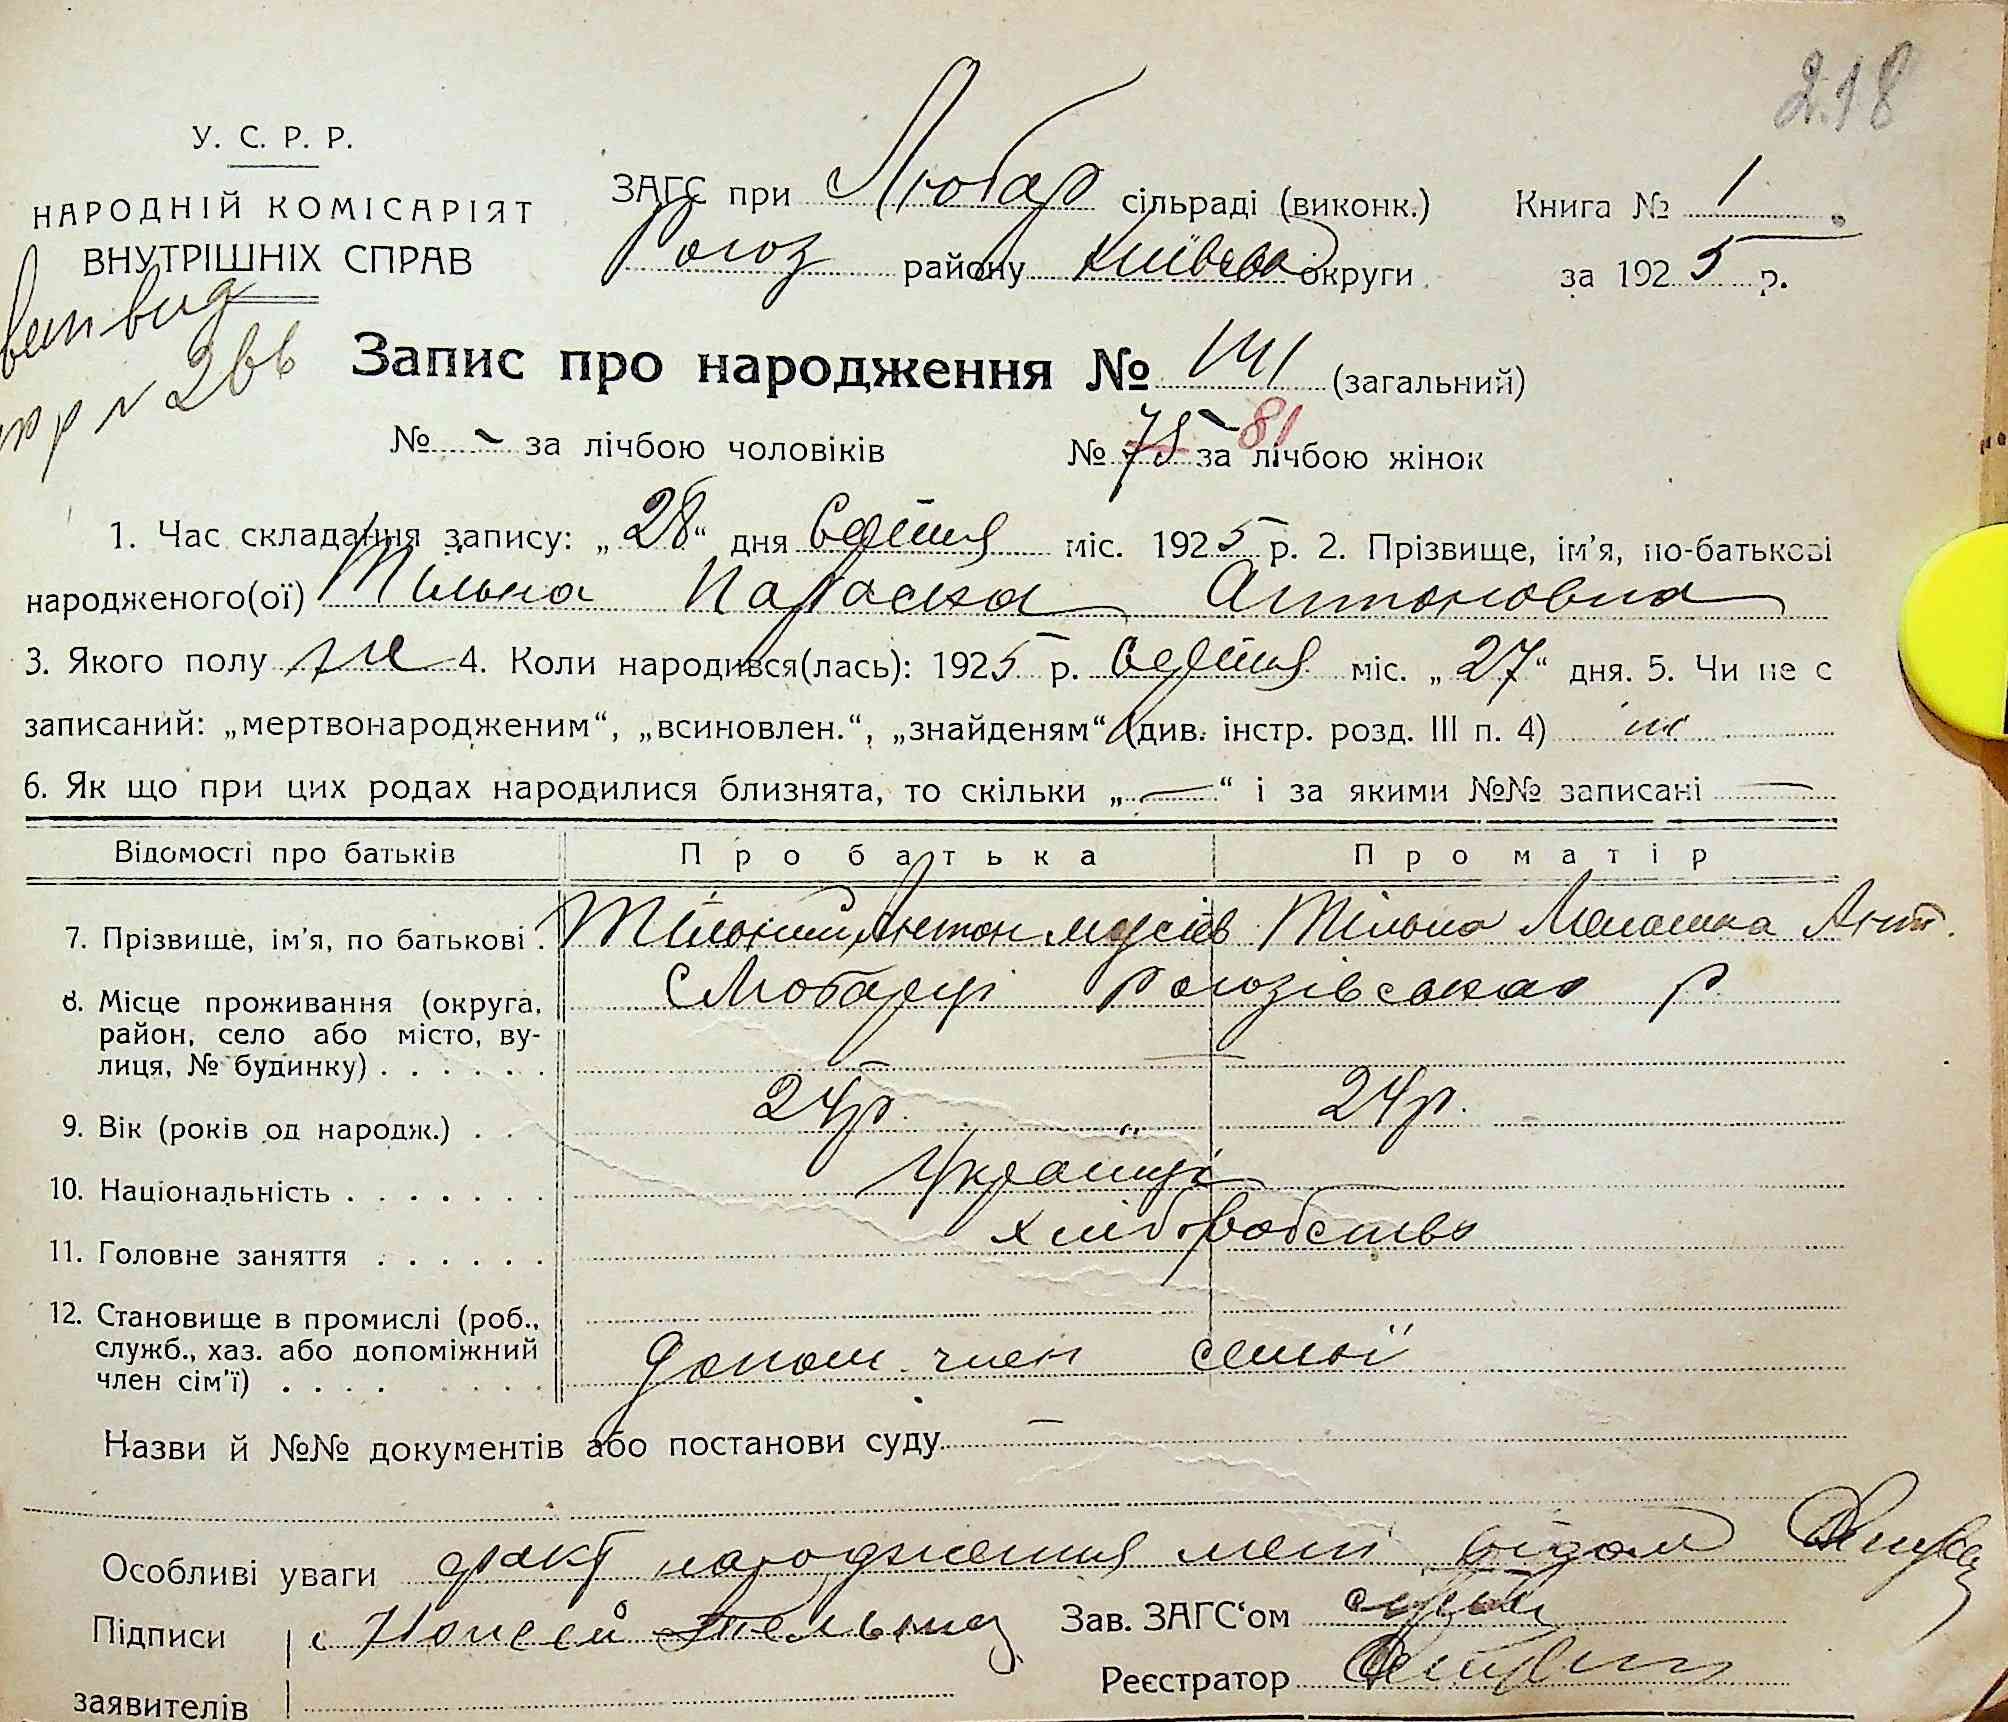 218
У. С. Р. Р.
НАРОДНІЙ КОМІСАРІЯТ
ВНУТРІШНІХ СПРАВ
ЗАГС при Любар сільраді (виконк.) Книга № 1
Рогоз району Київсько округи за 1925 р.
Запис про народження № 141 (загальний)
№ - за лічбою чоловіків № 75 81 за лічбою жінок
1. Час складання запису: „28“ дня Серпня міс. 1925 р. 2. Прізвище, ім'я, по-батькові
народженого(ої) Тільна Параска Антоновна
3. Якого полу же 4. Коли народився(лась): 1925 р. Серпня міс. „27“ дня. 5. Чи не є
записаний: „мертвонародженим“, „всиновлен.“, „знайденям“ (див. інстр. розд. III п. 4) ні
6. Як що при цих родах народилися близнята, то скільки „—“ і за якими №№ записані —
Відомості про батьків Про батька Про матір
7. Прізвище, ім'я, по батькові . Тільний Антон Мусіев Тільна Мелашка Ант.
8. Місце проживання (округа, С Любарці Рогозівського р
район, село або місто, ву-
лиця, № будинку) . . . . . .
9. Вік (років од народж.) . . 24 р. 24 р.
10. Національність . . . . . . . Українці
11. Головне заняття . . . . . . хліборобство
12. Становище в промислі (роб.,
служб., хаз. або допоміжний допом. член семьї
член сім'ї) . . . .
Назви й №№ документів або постанови суду —
Особливі уваги факт народження мені відом
Підписи Зав. ЗАГС'ом
заявителів Реєстратор